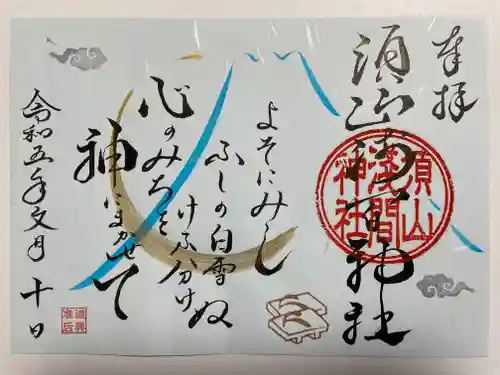 奉拝
須山浅間神社
須山
浅間
神社
よそにみし
ふしの白雪
けふハ分けぬ
心のみちを
神にまかせて
令和五年文月十日
道興
准后